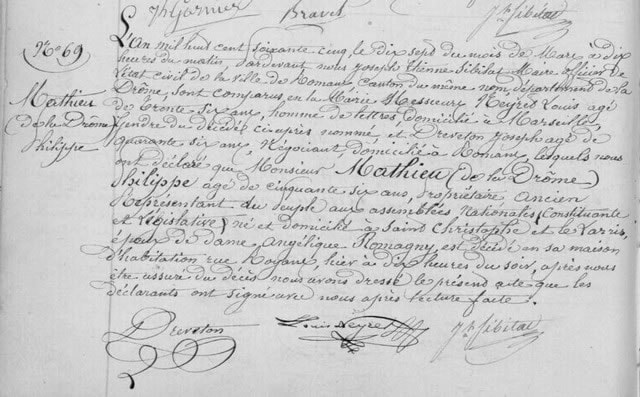 Jh Garnier Bravet Jh Sibilat
No 69
Mathieu
de la Drôme
Philippe
L'An mil huit cent soixante cinq, le dix sept du mois de Mars à dix
heures du matin, pardevant nous Joseph Etienne Sibilat Maire officier de
l'état civil de la Ville de Romans Canton du même nom, département de la
Drôme, sont comparus en la Mairie Messieurs Neyret Louis agé
de trente six ans, homme de lettres domicilié à Marseille,
gendre du décédé ci après nommé et Dreveton Joseph agé de
quarante six ans, Négociant, domicilié à Romans, lesquels nous
ont déclaré que Monsieur Mathieu (de la Drôme)
Philippe agé de cinquante six ans, propriétaire Ancien
Représentant du peuple aux assemblées Nationales (Constituante
et Législative) né et domicilié à Saint Christophe et le Larris,
époux de dame Angélique Romagny, est décédé en sa maison
d'habitation rue Royans, hier à dix heures du soir, après nous
être assuré du décès nous avons dressé le présent acte que les
déclarants ont signé avec nous après lecture faite.
Dreveton Louis Neyret Jh Sibilat